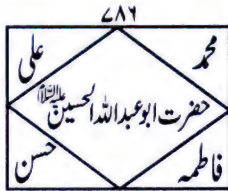 ۷۸۶
محمدؐ
علی
حضرت ابو عبداللہ الحسین علیہ السلام
فاطمہ
حسن